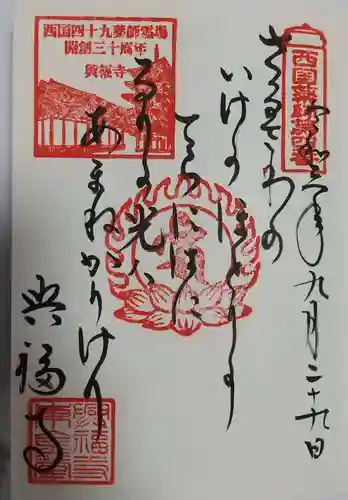 西国薬師第四番
令和六年九月二十九日
さるさわの
いけのほとりの
てらにはに
るりの光は
あまねかりけり
興福寺
西国四十九薬師霊場
開創三十周年
興福寺
興福寺
東金堂